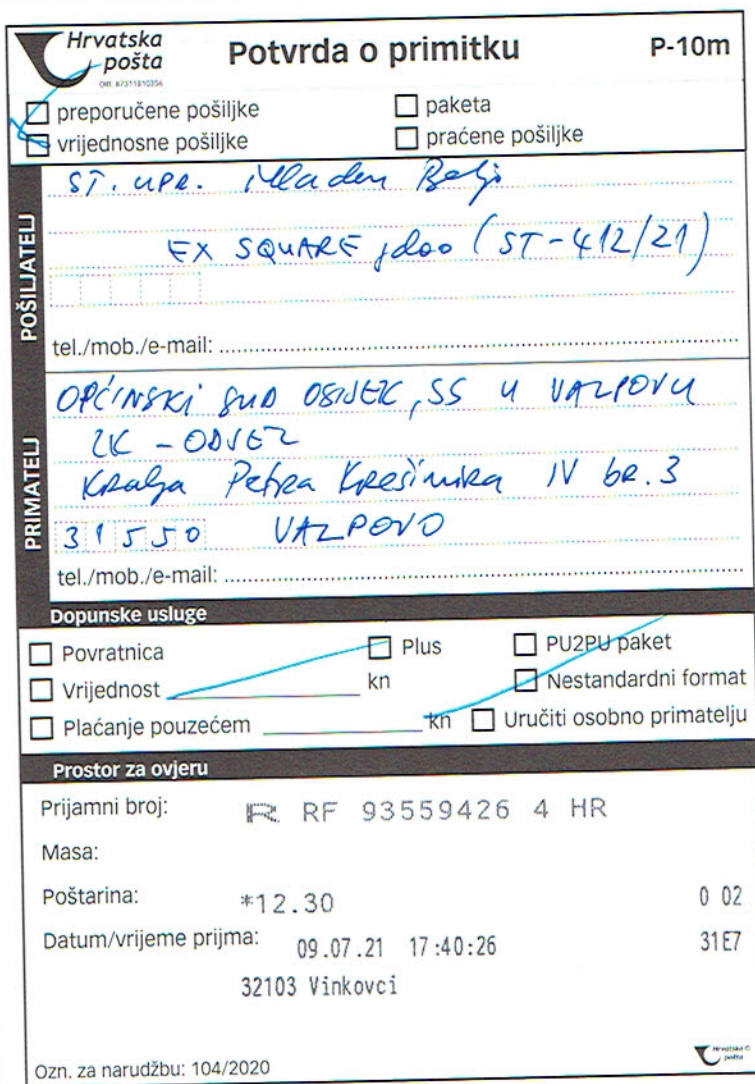 Hrvatska
pošta
OIB: 87311810356
Potvrda o primitku
P-10m
preporučene pošiljke
paketa
vrijednosne pošiljke
praćene pošiljke
POŠILJATELJ
ST. UPR. Mladen
EX SQUARE jdoo (ST-412/21)
tel./mob./e-mail:
PRIMATELJ
OPĆINSKI SUD OSIJEK, SS U VALPOVU
ZK - ODJEL
Kralja Petra Krešimira IV br. 3
31550 VALPOVO
tel./mob./e-mail:
Dopunske usluge
Povratnica
Plus
PU2PU paket
Vrijednost kn
Nestandardni format
Plaćanje pouzećem kn
Uručiti osobno primatelju
Prostor za ovjeru
Prijamni broj: R RF 93559426 4 HR
Masa:
Poštarina: *12.30 0 02
Datum/vrijeme prijma: 09.07.21 17:40:26 31E7
32103 Vinkovci
Ozn. za narudžbu: 104/2020
Hrvatska
pošta